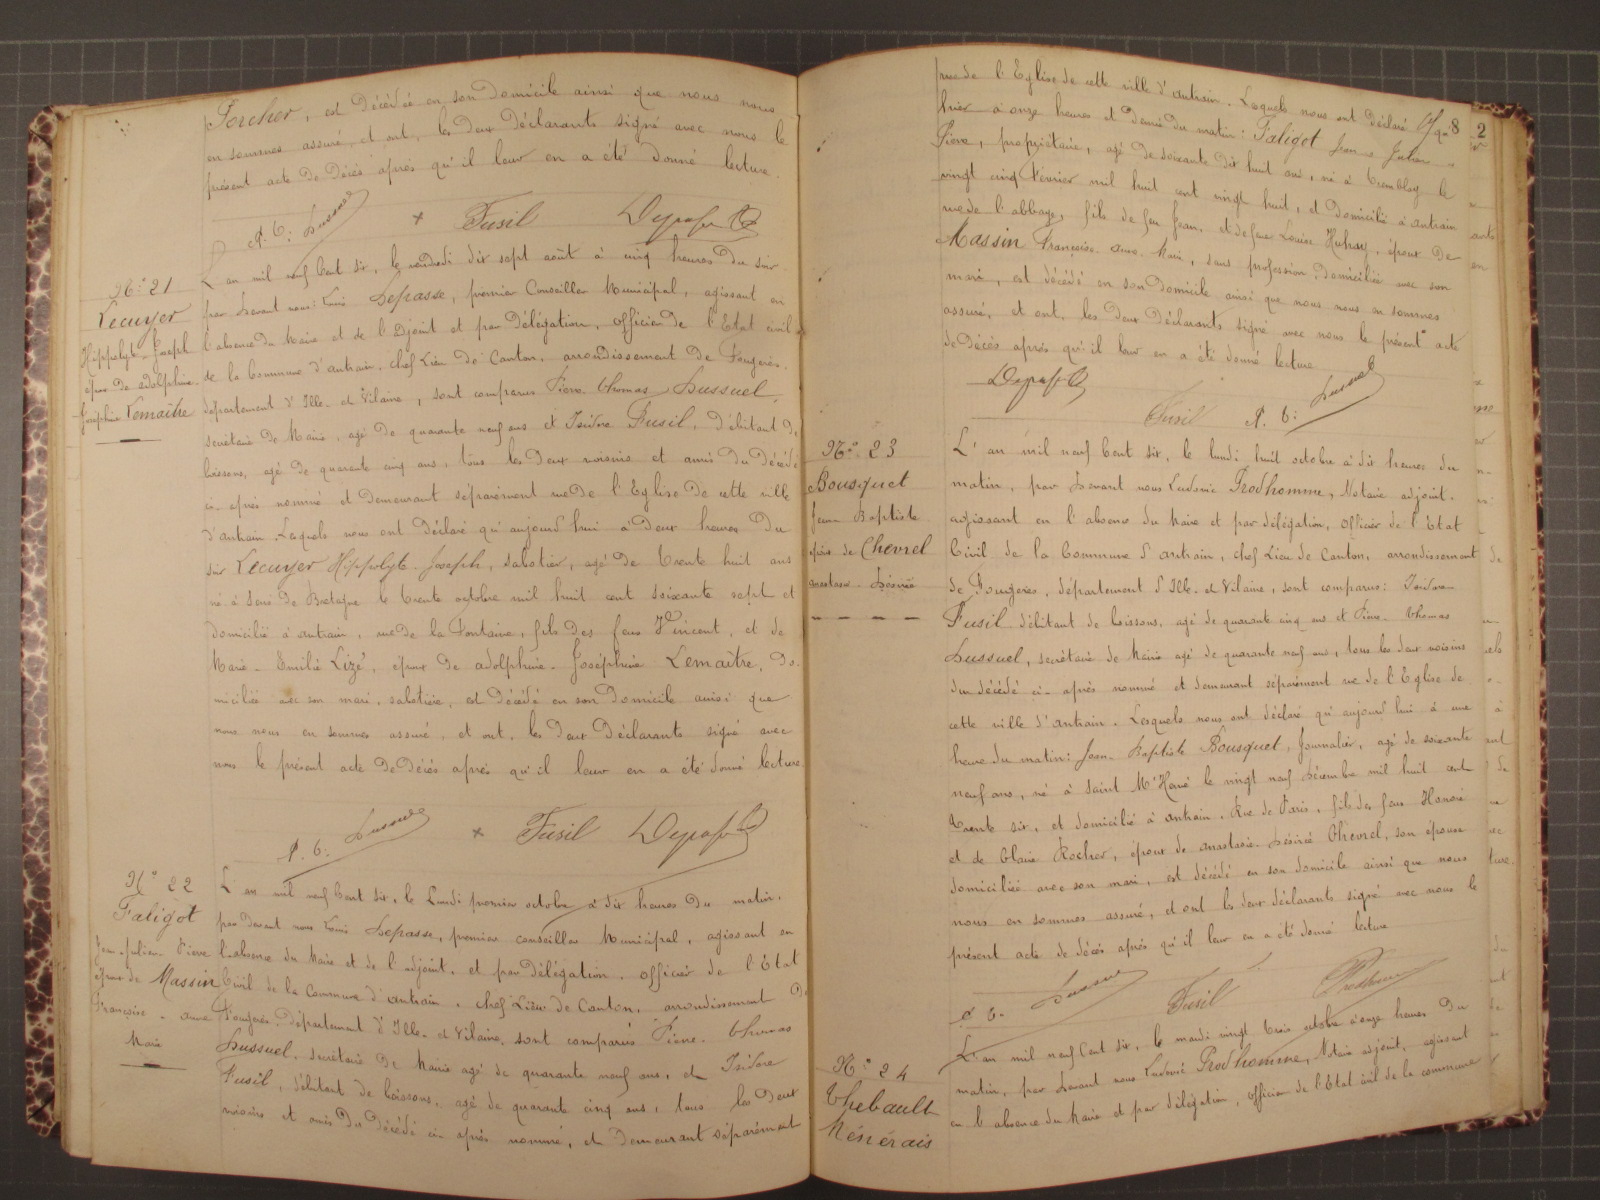 Porcher, est décédée en son domicile ainsi que nous nous
en sommes assuré, et ont, les deux déclarants signé avec nous le
présent acte de décès après qu'il leur en a été donné lecture.
P. T: Dussuel + Fusil Depasse
N° 21
Lecuyer
Hippolyte Joseph
époux de adolphine
Joséphine Lemaître
L'an mil neuf Cent six, le vendredi dix sept août à cinq heures du soir
par devant nous: Louis Depasse, premier Conseiller Municipal, agissant en
l'absence du Maire et de l'adjoint et par délégation, officier de l'Etat civil
de la Commune d'antrain, chef Lieu de Canton, arrondissement de Fougères,
département d'Ille-et-Vilaine, sont comparus Pierre Thomas Dussuel,
secrétaire de Mairie, agé de quarante neuf ans et Isidore Fusil, débitant de
boissons, agé de quarante cinq ans, tous les deux voisins et amis du décédé
ci-après nommé et demeurant séparément rue de l'Eglise de cette ville
d'antrain. Lesquels nous ont déclaré qu'aujourd'hui à deux heures du
soir Lecuyer Hippolyte Joseph, sabotier, agé de trente huit ans
né à Sens de Bretagne le trente octobre mil huit cent soixante sept et
domicilié à antrain, rue de la Fontaine, fils des feus Vincent, et de
Marie-Emilie Lizé, époux de adolphine-Joséphine Lemaître, do-
miciliée avec son mari, sabotière, est décédé en son domicile ainsi que
nous nous en sommes assuré, et ont, les deux déclarants signé avec
nous le présent acte de décès après qu'il leur en a été donné lecture
P. T: Dussuel + Fusil Depasse
N° 22
Faligot
Jean-Julien-Pierre
époux de Massin
Françoise-anne
Marie
L'an mil neuf Cent six, le Lundi premier octobre à dix heures du matin,
par devant nous Louis Depasse, premier conseiller Municipal, agissant en
l'absence du Maire et de l'adjoint, et par délégation, officier de l'Etat
Civil de la Commune d'antrain, chef Lieu de Canton, arrondissement de
Fougères, département d'Ille-et-Vilaine, sont comparus Pierre-Thomas
Dussuel, secrétaire de Mairie agé de quarante neuf ans, et Isidore
Fusil, débitant de boissons, agé de quarante cinq ans, tous les deux
voisins et amis du décédé ci-après nommé, et demeurant séparément
8
2
rue de l'Eglise de cette ville d'antrain. Lesquels nous ont déclaré que
hier à onze heures et demie du matin: Faligot Jean-Julien-
Pierre, propriétaire, agé de soixante dix huit ans, né à Tremblay le
vingt cinq février mil huit cent vingt huit, et domicilié à antrain
rue de l'abbaye, fils de feu Jean, et de feue Louise Huhay, époux de
Massin Françoise-anne-Marie, sans profession, domiciliée avec son
mari, est décédé en son domicile ainsi que nous nous en sommes
assuré, et ont, les deux déclarants signé avec nous le présent acte
de décès après qu'il leur en a été donné lecture
Depasse Fusil P. T: Dussuel
N° 23
Bousquet
Jean Baptiste
époux de Chevrel
anastasie-Désirée
L'an mil neuf Cent six, le lundi huit octobre à dix heures du
matin, par devant nous Ludovic Prodhomme, Notaire adjoint,
agissant en l'absence du Maire et par délégation, officier de l'Etat
Civil de la Commune d'antrain, chef Lieu de Canton, arrondissement
de Fougères, département d'Ille-et-Vilaine, sont comparus: Isidore
Fusil débitant de boissons, agé de quarante cinq ans et Pierre-Thomas
Dussuel, secrétaire de Mairie agé de quarante neuf ans, tous les deux voisins
du décédé ci-après nommé et demeurant séparément rue de l'Eglise de
cette ville d'antrain. Lesquels nous ont déclaré qu'aujourd'hui à une
heure du matin: Jean-Baptiste Bousquet, Journalier, agé de soixante
neuf ans, né à Saint M'Hervé le vingt neuf Décembre mil huit cent
trente six, et domicilié à antrain, Rue de Paris, fils des feus Honoré
et de Claire Rocher, époux de anastasie-Désirée Chevrel, son épouse
domiciliée avec son mari, est décédé en son domicile ainsi que nous
nous en sommes assuré, et ont les deux déclarants signé avec nous le
présent acte de décès après qu'il leur en a été donné lecture
P. T. Dussuel Fusil Prodhomme
N° 24
Thebault
Ménérais
L'an mil neuf Cent six, le mardi vingt trois octobre à onze heures du
matin, par devant nous Ludovic Prodhomme, Notaire adjoint, agissant
en l'absence du Maire et par délégation, officier de l'Etat civil de la commune